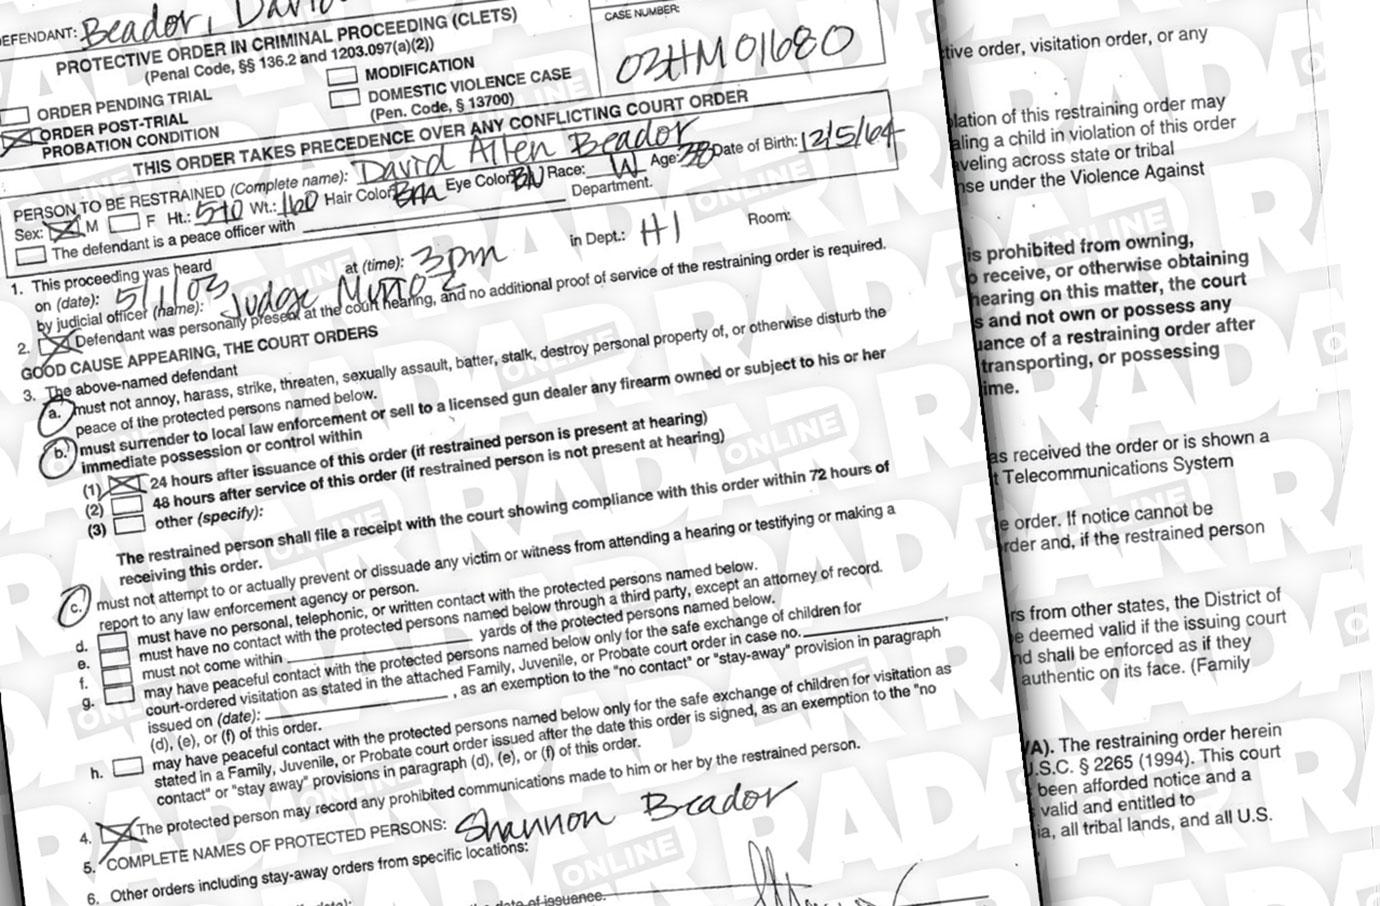 DEFENDANT: Beador, David
PROTECTIVE ORDER IN CRIMINAL PROCEEDING (CLETS)
(Penal Code, §§ 136.2 and 1203.097(a)(2))
CASE NUMBER:
03HM01680
ORDER PENDING TRIAL
MODIFICATION
ORDER POST-TRIAL
PROBATION CONDITION
DOMESTIC VIOLENCE CASE
(Pen. Code, § 13700)
THIS ORDER TAKES PRECEDENCE OVER ANY CONFLICTING COURT ORDER
PERSON TO BE RESTRAINED (Complete name): David Allen Beador
Sex: M F Ht.: 5'10 Wt.: 160 Hair Color: Eye Color: Race: W Age: 38 Date of Birth: 12/5/64
The defendant is a peace officer with Department.
1. This proceeding was heard
on (date): 5/1/03 at (time): 3pm in Dept.: H1 Room:
by judicial officer (name): Judge
2. Defendant was personally present at the court hearing, and no additional proof of service of the restraining order is required.
GOOD CAUSE APPEARING, THE COURT ORDERS
3. The above-named defendant
a. must not annoy, harass, strike, threaten, sexually assault, batter, stalk, destroy personal property of, or otherwise disturb the
peace of the protected persons named below.
b. must surrender to local law enforcement or sell to a licensed gun dealer any firearm owned or subject to his or her
immediate possession or control within
(1) 24 hours after issuance of this order (if restrained person is present at hearing)
(2) 48 hours after service of this order (if restrained person is not present at hearing)
(3) other (specify):
The restrained person shall file a receipt with the court showing compliance with this order within 72 hours of
receiving this order.
c. must not attempt to or actually prevent or dissuade any victim or witness from attending a hearing or testifying or making a
report to any law enforcement agency or person.
d. must have no personal, telephonic, or written contact with the protected persons named below.
e. must have no contact with the protected persons named below through a third party, except an attorney of record.
f. must not come within yards of the protected persons named below.
g. may have peaceful contact with the protected persons named below only for the safe exchange of children for
court-ordered visitation as stated in the attached Family, Juvenile, or Probate court order in case no. ,
issued on (date): , as an exemption to the "no contact" or "stay-away" provision in paragraph
(d), (e), or (f) of this order.
h. may have peaceful contact with the protected persons named below only for the safe exchange of children for visitation as
stated in a Family, Juvenile, or Probate court order issued after the date this order is signed, as an exemption to the "no
contact" or "stay away" provisions in paragraph (d), (e), or (f) of this order.
4. The protected person may record any prohibited communications made to him or her by the restrained person.
5. COMPLETE NAMES OF PROTECTED PERSONS: Shannon Beador
6. Other orders including stay-away orders from specific locations:
date of issuance.
tive order, visitation order, or any
lation of this restraining order may
aling a child in violation of this order
aveling across state or tribal
nse under the Violence Against
is prohibited from owning,
o receive, or otherwise obtaining
hearing on this matter, the court
s and not own or possess any
uance of a restraining order after
transporting, or possessing
ime.
as received the order or is shown a
t Telecommunications System
e order. If notice cannot be
rder and, if the restrained person
rs from other states, the District of
e deemed valid if the issuing court
nd shall be enforced as if they
authentic on its face. (Family
VA). The restraining order herein
J.S.C. § 2265 (1994). This court
been afforded notice and a
valid and entitled to
ia, all tribal lands, and all U.S.
RADAR ONLINE